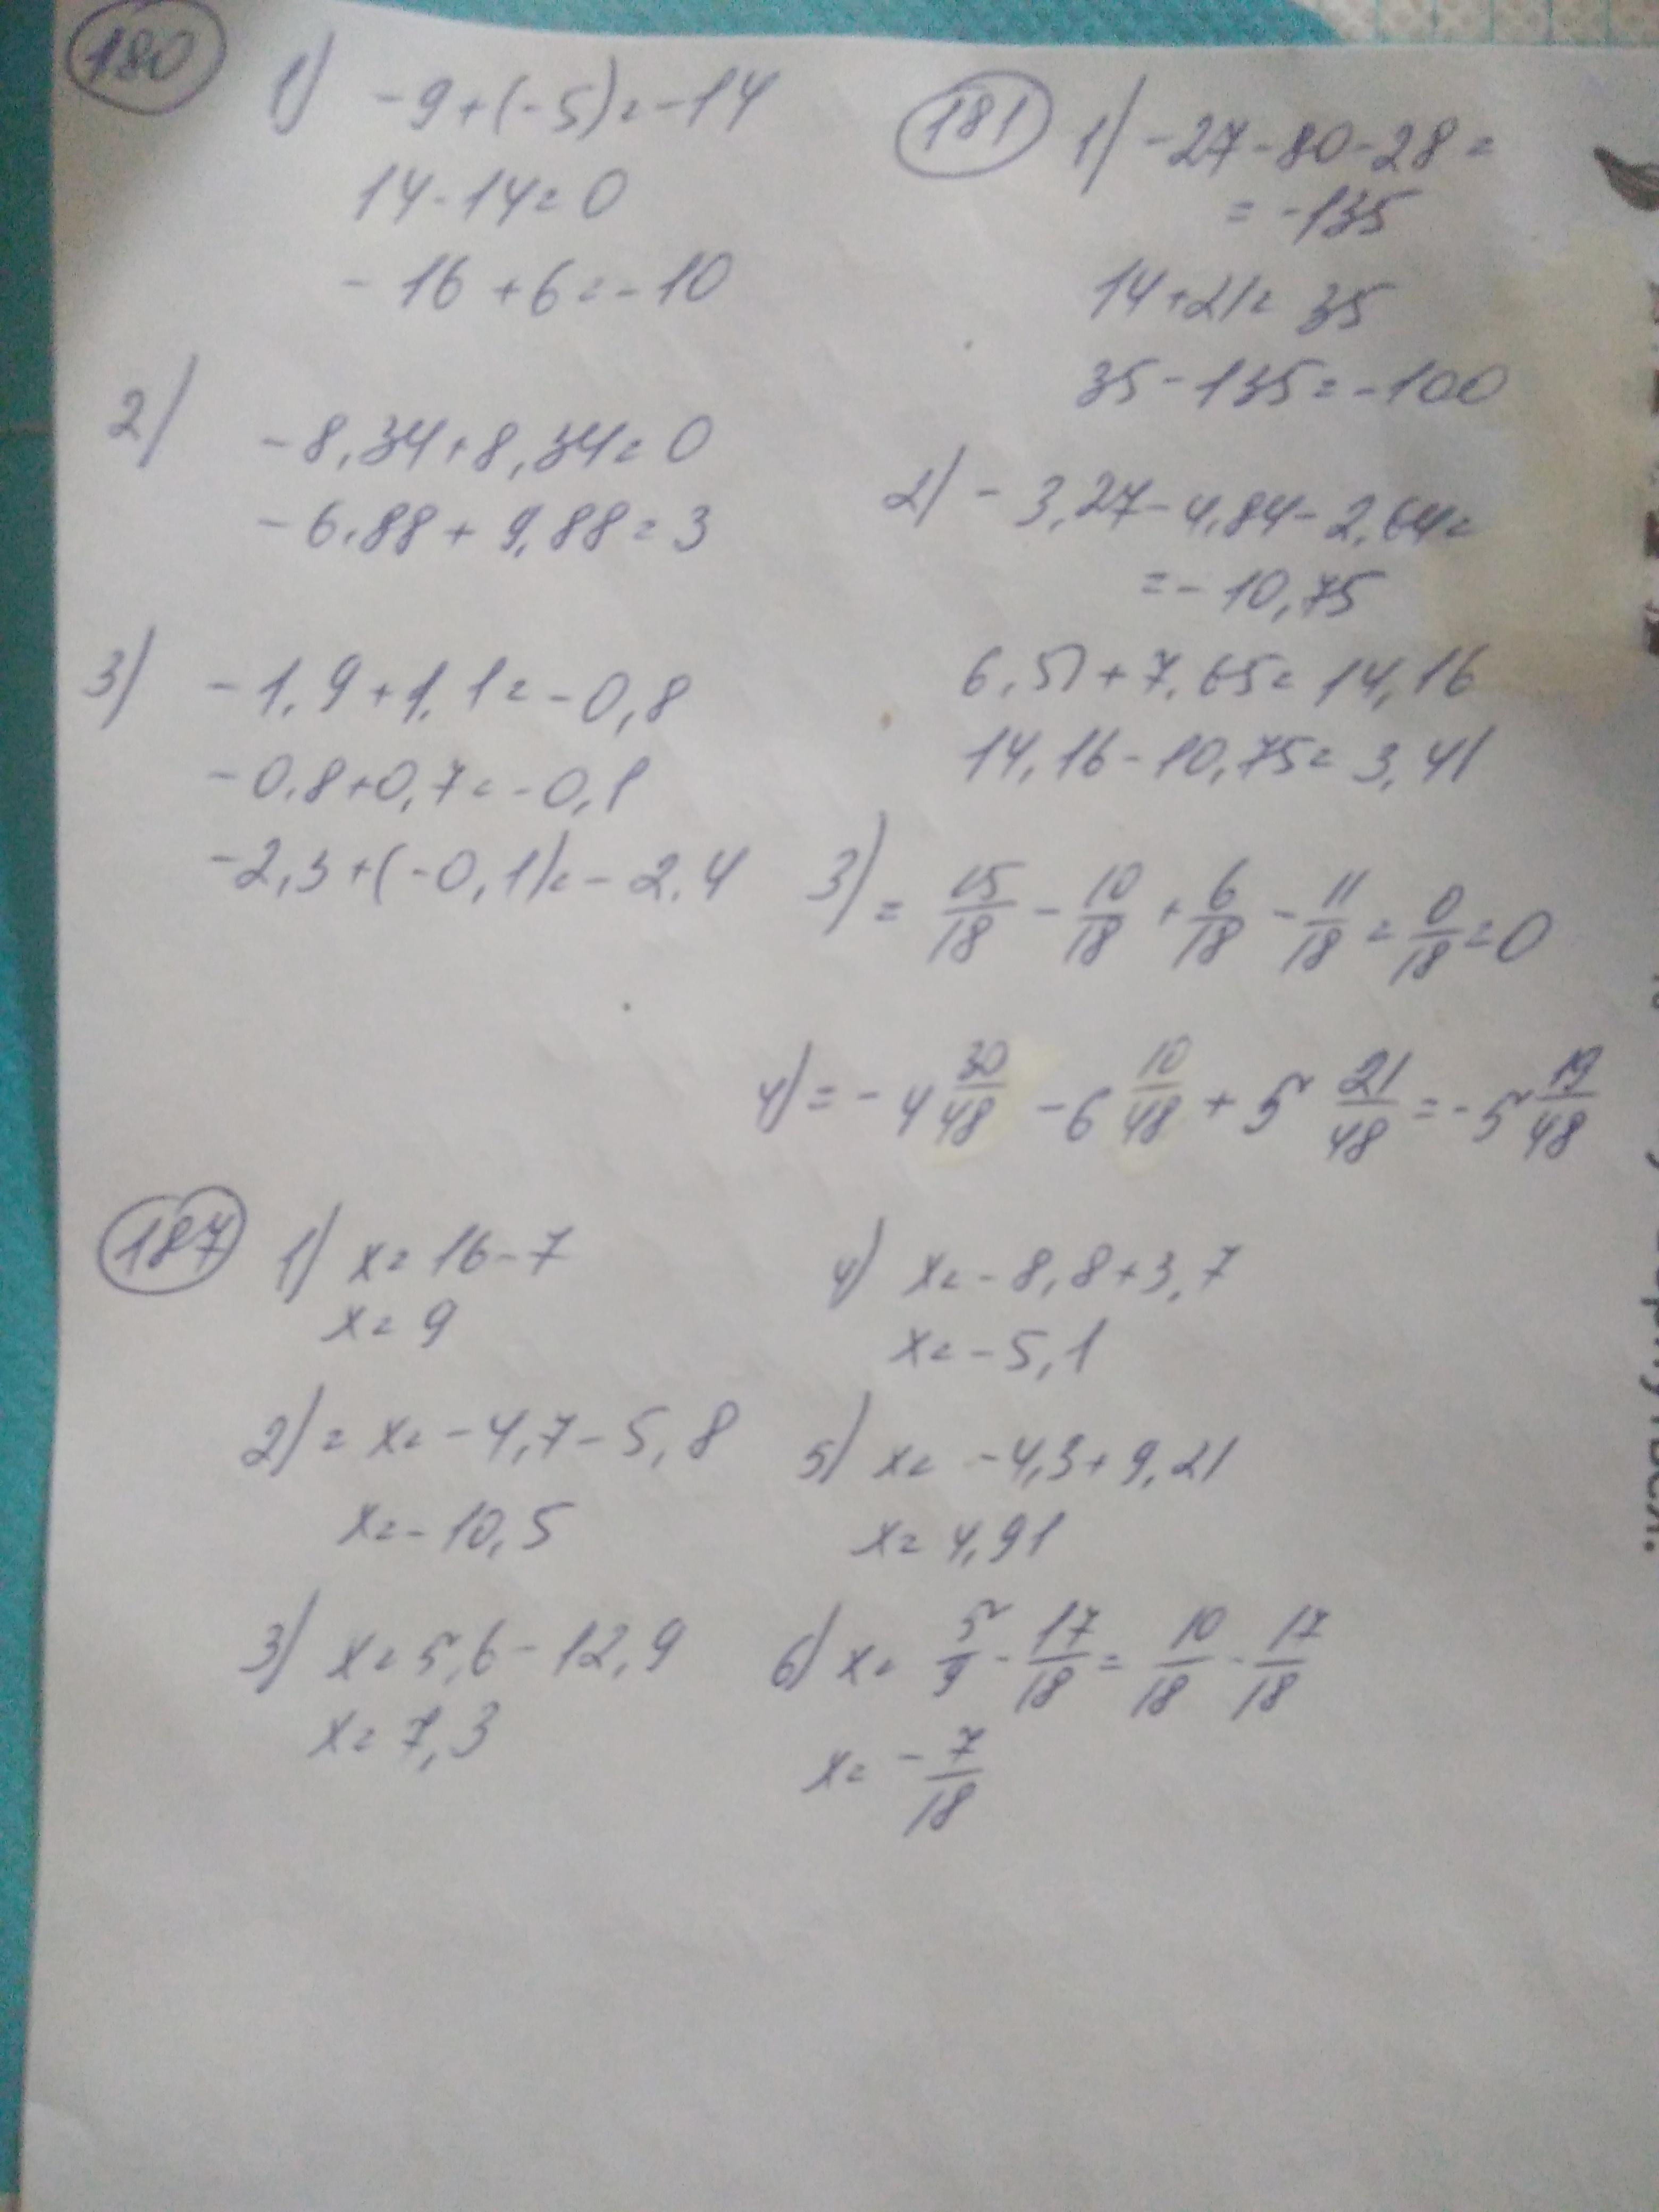 180
1) -9+(-5)=-14
14-14=0
-16+6=-10
2) -8,34+8,34=0
-6,88+9,88=3
3) -1,9+1,1=-0,8
-0,8+0,7=-0,1
-2,3+(-0,1)=-2,4
181
1) -27-80-28=
=-135
14+21=35
35-135=-100
2) -3,27-4,84-2,64=
=-10,75
6,51+7,65=14,16
14,16-10,75=3,41
3) = 15/18 - 10/18 + 6/18 - 11/18 = 0/18 = 0
4) = -4 30/48 - 6 10/48 + 5 21/48 = -5 19/48
187
1) x=16-7
x=9
2) = x=-4,7-5,8
x=-10,5
3) x=5,6-12,9
x=7,3
4) x=-8,8+3,7
x=-5,1
5) x=-4,3+9,21
x=4,91
6) x= 5/9 - 17/18 = 10/18 - 17/18
x= -7/18